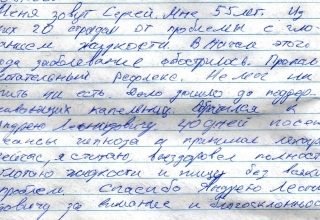 Меня зовут Сергей. Мне 55 лет. Из
них 20 страдал от проблемы с гло-
танием жидкости. В начале этого
года заболевание обострилось. Пропал
глотательный рефлекс. Не мог ни
пить ни есть. Дело дошло до поддер-
живающих капельниц. Обратился к
Андрею Леонидовичу. 10 дней посещ
сеансы гипноза и принимал лекар
сейчас, я считаю, выздоровел полност
глотаю жидкости и пищу без всяких
проблем. Спасибо Андрею Леони
довичу за внимание и благосклонность